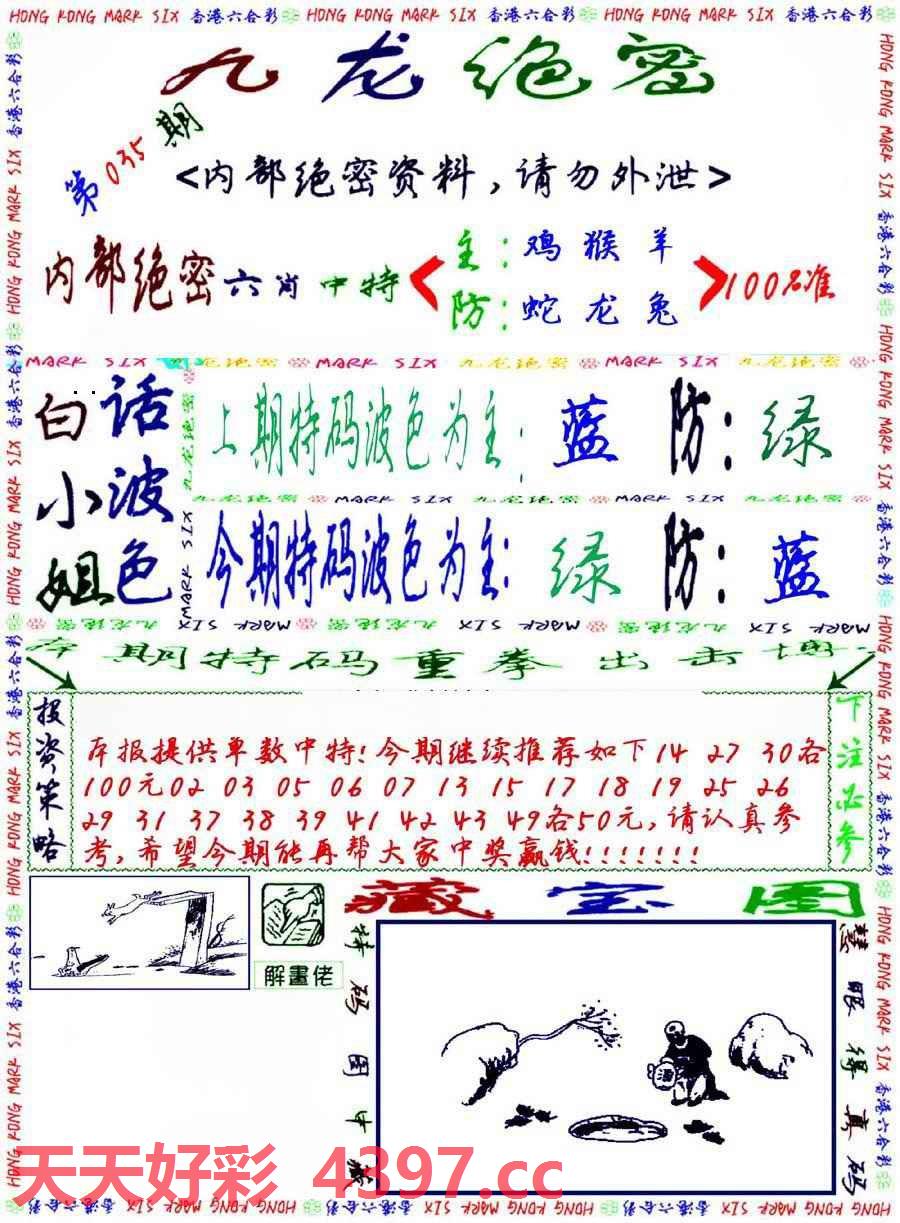 HONG KONG MARK SIX 香港六合彩 HONG KONG MARK SIX 香港六合彩 HONG KONG MARK SIX 香港六合彩 HONG KONG MARK SIX 香港六合彩
九龙绝密
第035期
<内部绝密资料,请勿外泄>
内部绝密六肖中特
主:鸡猴羊
防:蛇龙兔
100%准
MARK SIX 九龙绝密 MARK SIX 九龙绝密 MARK SIX 九龙绝密
白话小波姐色
上期特码波色为主:蓝 防:绿
九龙绝密 MARK SIX 九龙绝密 MARK SIX 九龙绝密
今期特码波色为主:绿 防:蓝
本期特码重拳出击
投资策略
本报提供单数中特!今期继续推荐如下14 27 30各
100元02 03 05 06 07 13 15 17 18 19 25 26
29 31 37 38 39 41 42 43 49各50元,请认真参
考,希望今期能再帮大家中奖赢钱!!!!!!!
下注必参
藏宝图
解畫佬
特码图中藏
慧眼得真码
天天好彩 4397.cc